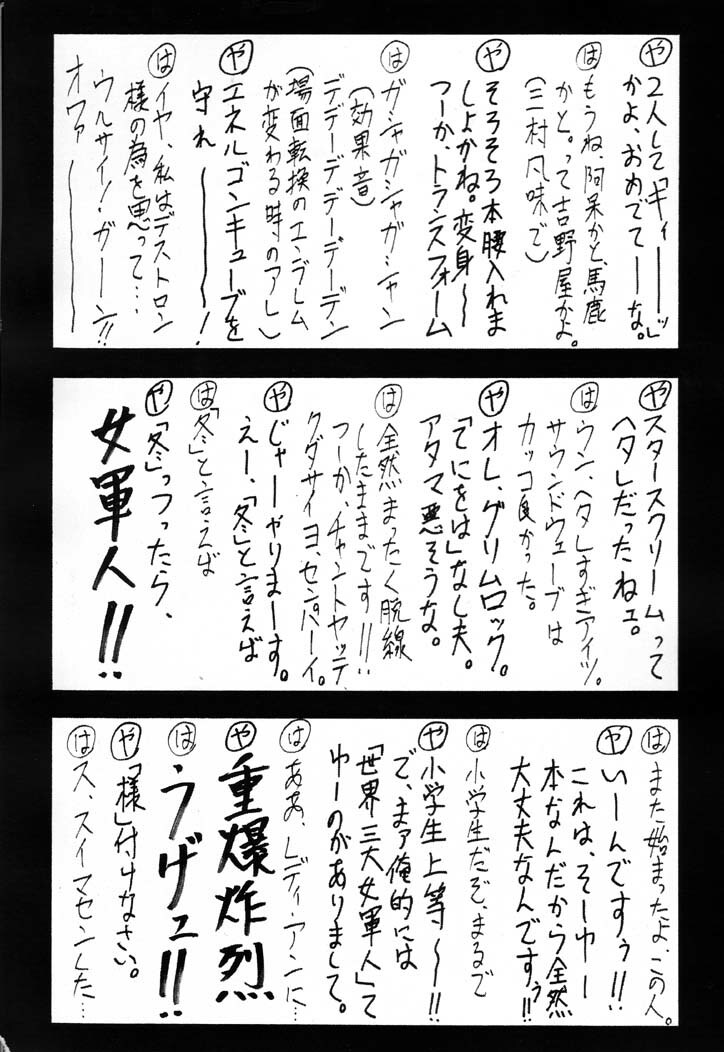 や 2人して「ギィーーッ」
かよ、おめでてーーな。
は もうね、阿呆かと、馬鹿
かと。って吉野屋かよ。
(三村凡味で)
や そろそろ本腰入れま
しょかね。変身〜〜
つーか、トランスフォーム
は ガシャガシャガシャン
(効果音)
デデデーデデデーデーデン
(場面転換のエンブレム
が変わる時のアレ)
や エネルゴンキューブを
守れ――――!
は イヤ、私はデストロン
様の為を思って…
ウルサイ!・ガーン!!
オワァ――――
や スタースクリームって
ヘタレだったねェ。
は ウン、ヘタレすぎアイツ。
サウンドウェーブは
カッコ良かった。
や オレ、グリムロック。
「てにをは」なし夫。
アタマ悪そうな。
は 全然まったく脱線
したままです!!!
つーか、チャントヤッテ
クダサイヨ、センパーイ。
や じゃーやりまーす。
えー、「冬」と言えば
は 「冬」と言えば
や 「冬」っつったら、
女軍人!!
は また始まったよ、この人。
や いーんですぅ!!
これは、そーゆー
本なんだから全然
大丈夫なんですぅ!!
は 小学生だぞ、まるで
や 小学生上等〜〜!!
で、まァ俺的には
「世界三大女軍人」て
ゆーのがありまして。
は ああ、レディ・アンに…
や 重爆炸烈
は うげェ!!
や 「様」付けなさい。
は ス、スイマセンした…